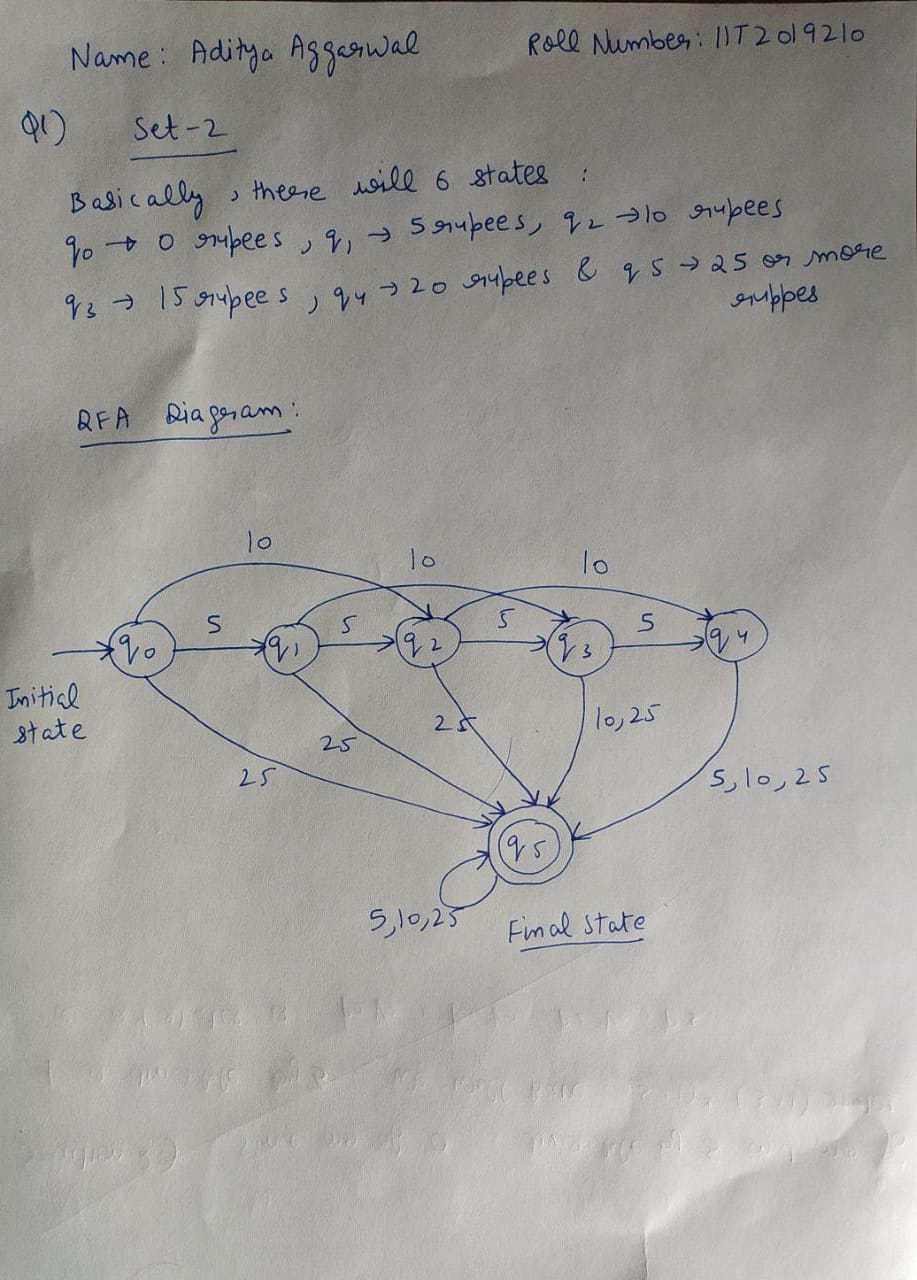 Name: Aditya Aggarwal
Roll Number: IIT2019210
Q1)
Set-2
Basically, there will 6 states :
q0 → 0 rupees, q1 → 5 rupees, q2 → 10 rupees
q3 → 15 rupees, q4 → 20 rupees & q5 → 25 or more
ruppes
DFA Diagram:
10
10
10
5
5
5
5
q0
q1
q2
q3
q4
Initial
state
25
25
25
10,25
5,10,25
q5
5,10,25
Final State